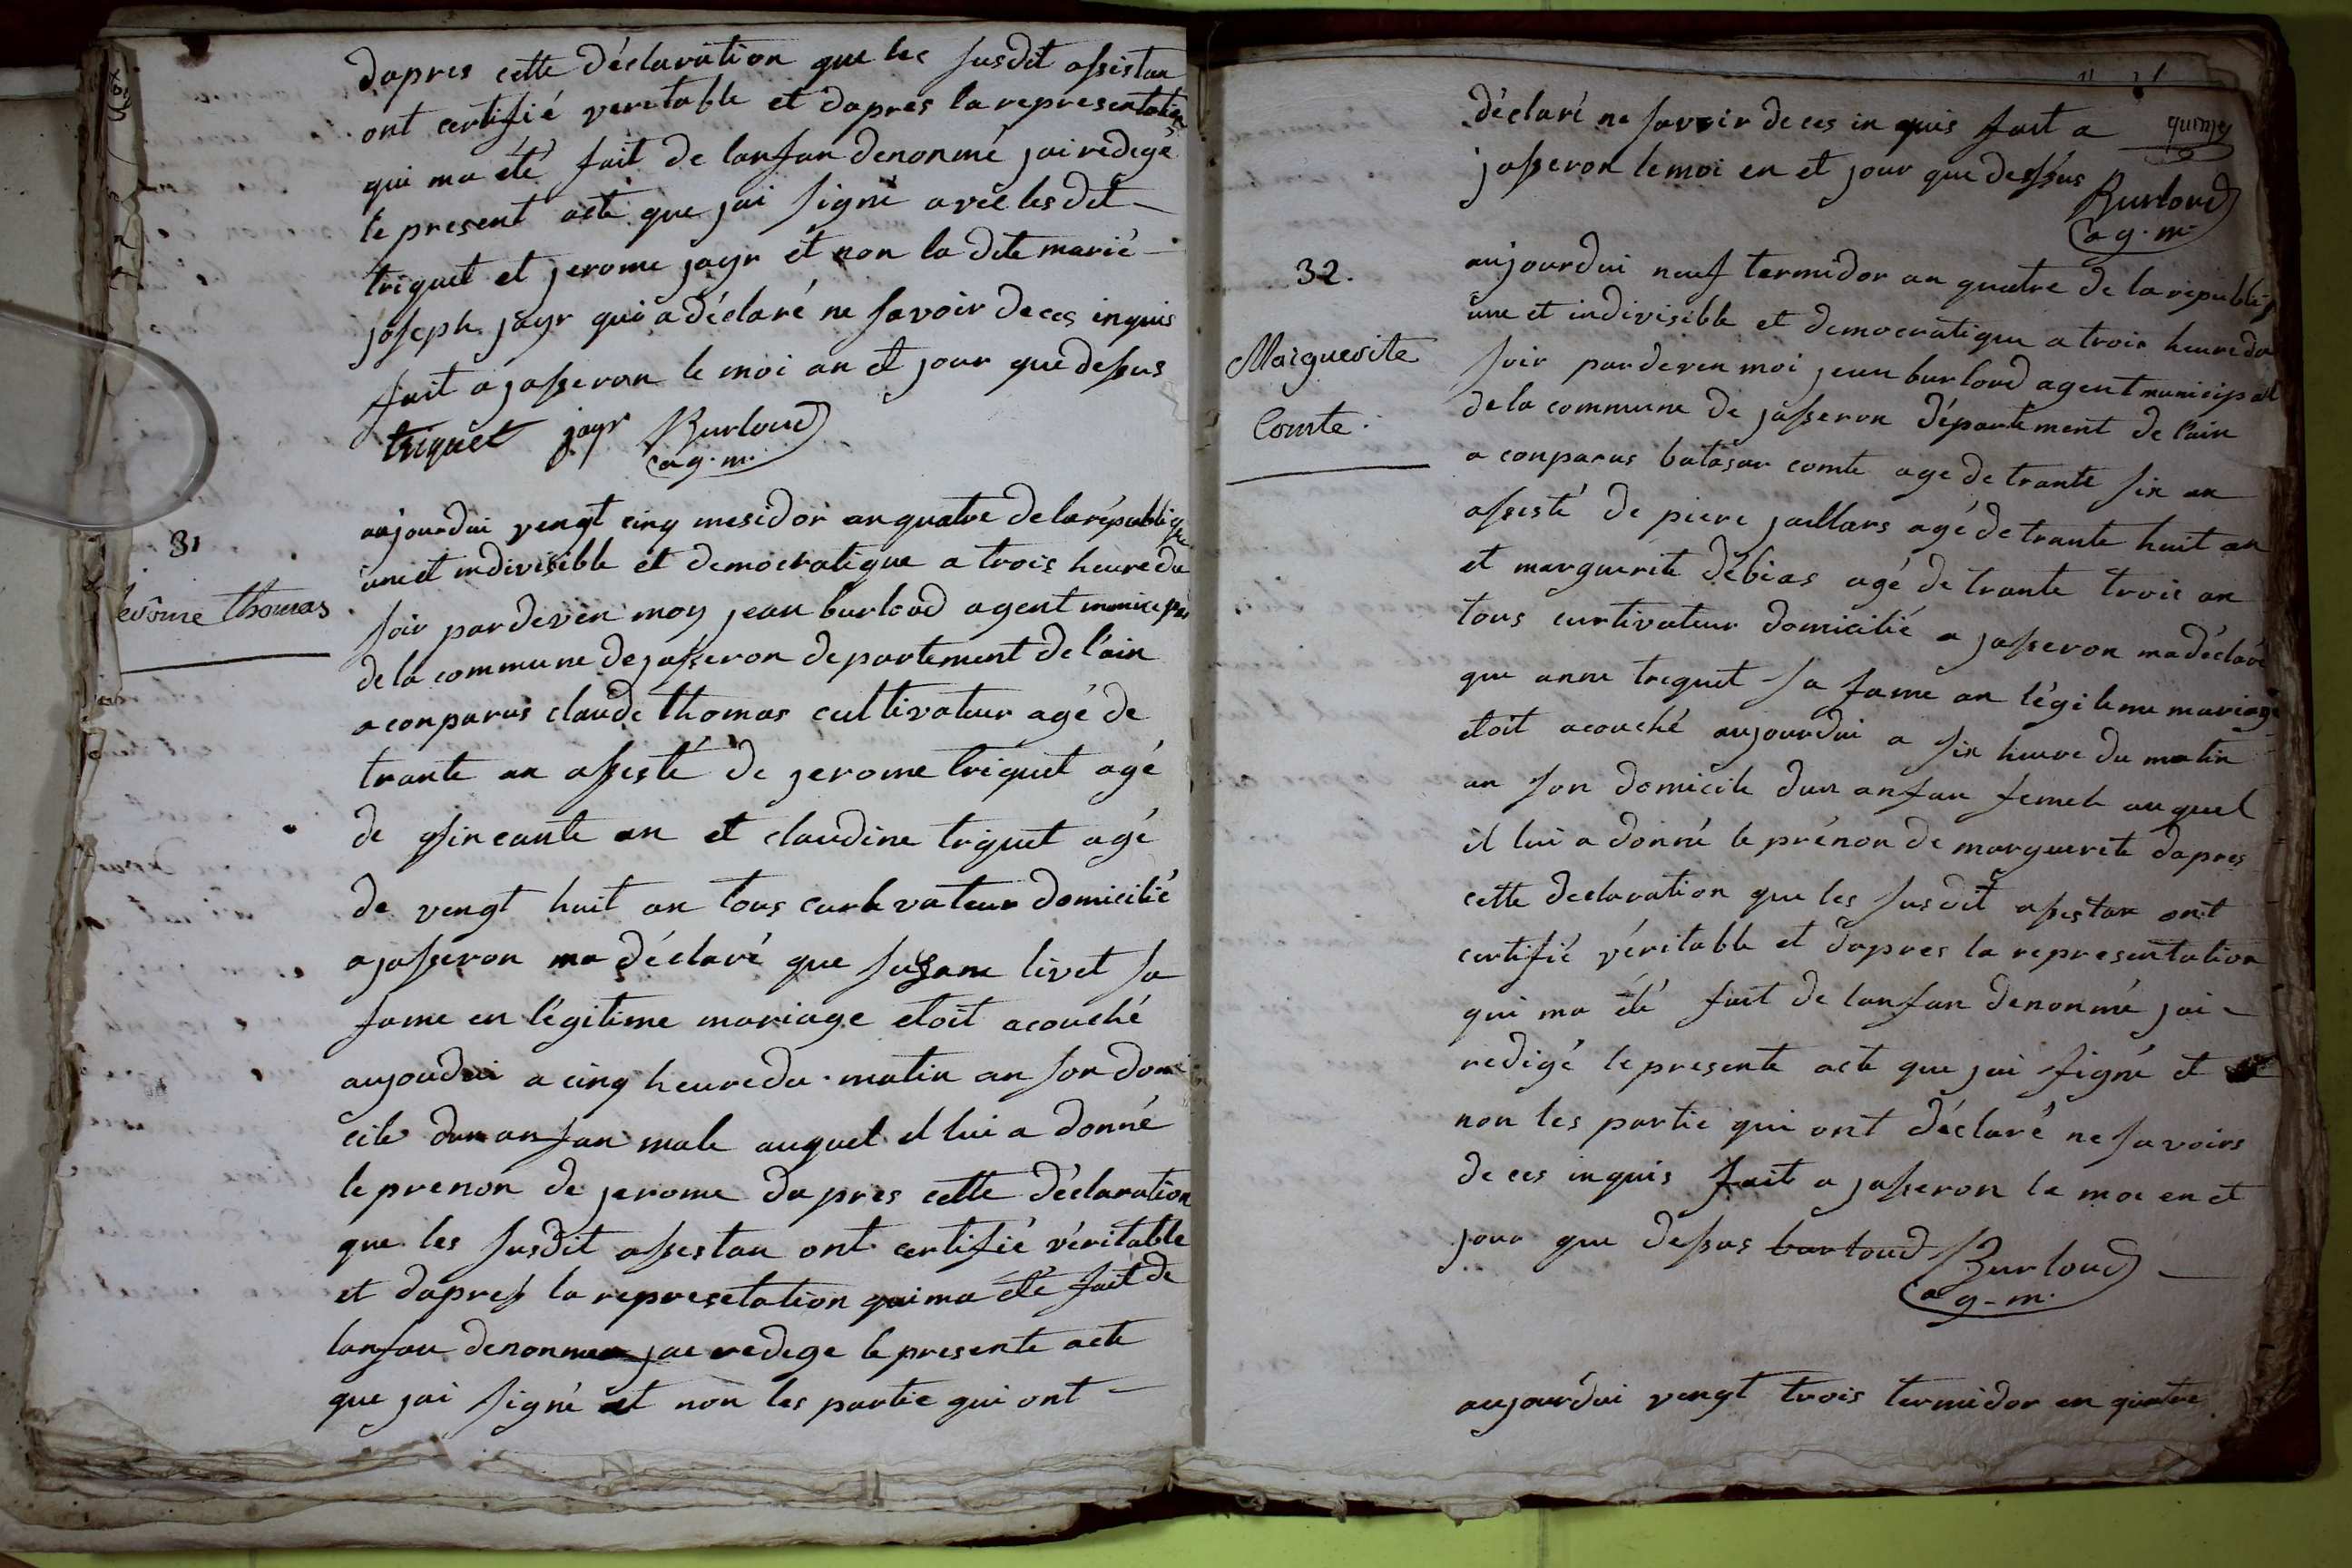 dapres cette déclaration que les susdit assistan
ont certifié veretable et dapres la representation
qui ma été fait de lanfan denonmé jai redegé
le present acte que jai signé avec lesdit
triquet et jerome jayr et non la dite marié
joseph jayr qui a déclaré ne savoir de ces inquis
fait a jasseron le moi an et jour que dessus
triquet jayr Burloud
ag. m.
31
Jerôme thomas
aujourdui vengt cinq mesidor an quatre de la républiq
une et indivisible et democratique a trois heure du
soir pardeven moy jean burloud agent municipal
de la commune de jasseron departement de l'ain
a conparus claude thomas cultivateur agé de
trante an assesté de jerome triquet agé
de sincante an et claudine triquet agé
de vengt huit an tous curtevateur domicilié
a jasseron ma déclaré que susane livet sa
fame en légitime mariage etoit acouché
aujoudui a cinq heure du matin an son domi
cile dun anfan male auquel il lui a donné
le prenon de jerome dapres cette déclaration
que les susdit assestan ont certifié véritable
et dapres la represetation qui ma été fait de
lanfan denonmer jae redege le presente acte
que jai signé et non les partie qui ont
déclaré ne savoir de ces in quis fait a
jasseron le moi en et jour que dessus
Burloud
ag. m.
32.
Marguerite
Comte.
aujourdui neuf termidor an quatre de la republiq
une et indivisible et democratique a trois heure du
soir pardeven moi jean burloud agent municipal
de la commune de jasseron département de l'ain
a conparus batasar comte age de trante six an
assesté de piere jaillars agé de trante huit an
et marguerite débias agé de trante trois an
tous curtivateur domicilié a jasseron ma déclaré
que anne trequet sa fame an légiteme mariage
etoit acouché aujourdui a six heure du matin
an son domicile dun anfan femele auquel
il lui a donné le prénon de marguerete dapres
cette declaration que les susdit assestan ont
certifié véritable et dapres la representation
qui ma été fait de lanfan denonmé jai
redigé le presente acte que jai signé et
non les partie qui ont déclaré ne savoirs
de ces inquis fait a jasseron le moi en et
jour que dessus burloud Burloud
ag-m.
aujourdui vengt trois termidor en quatre